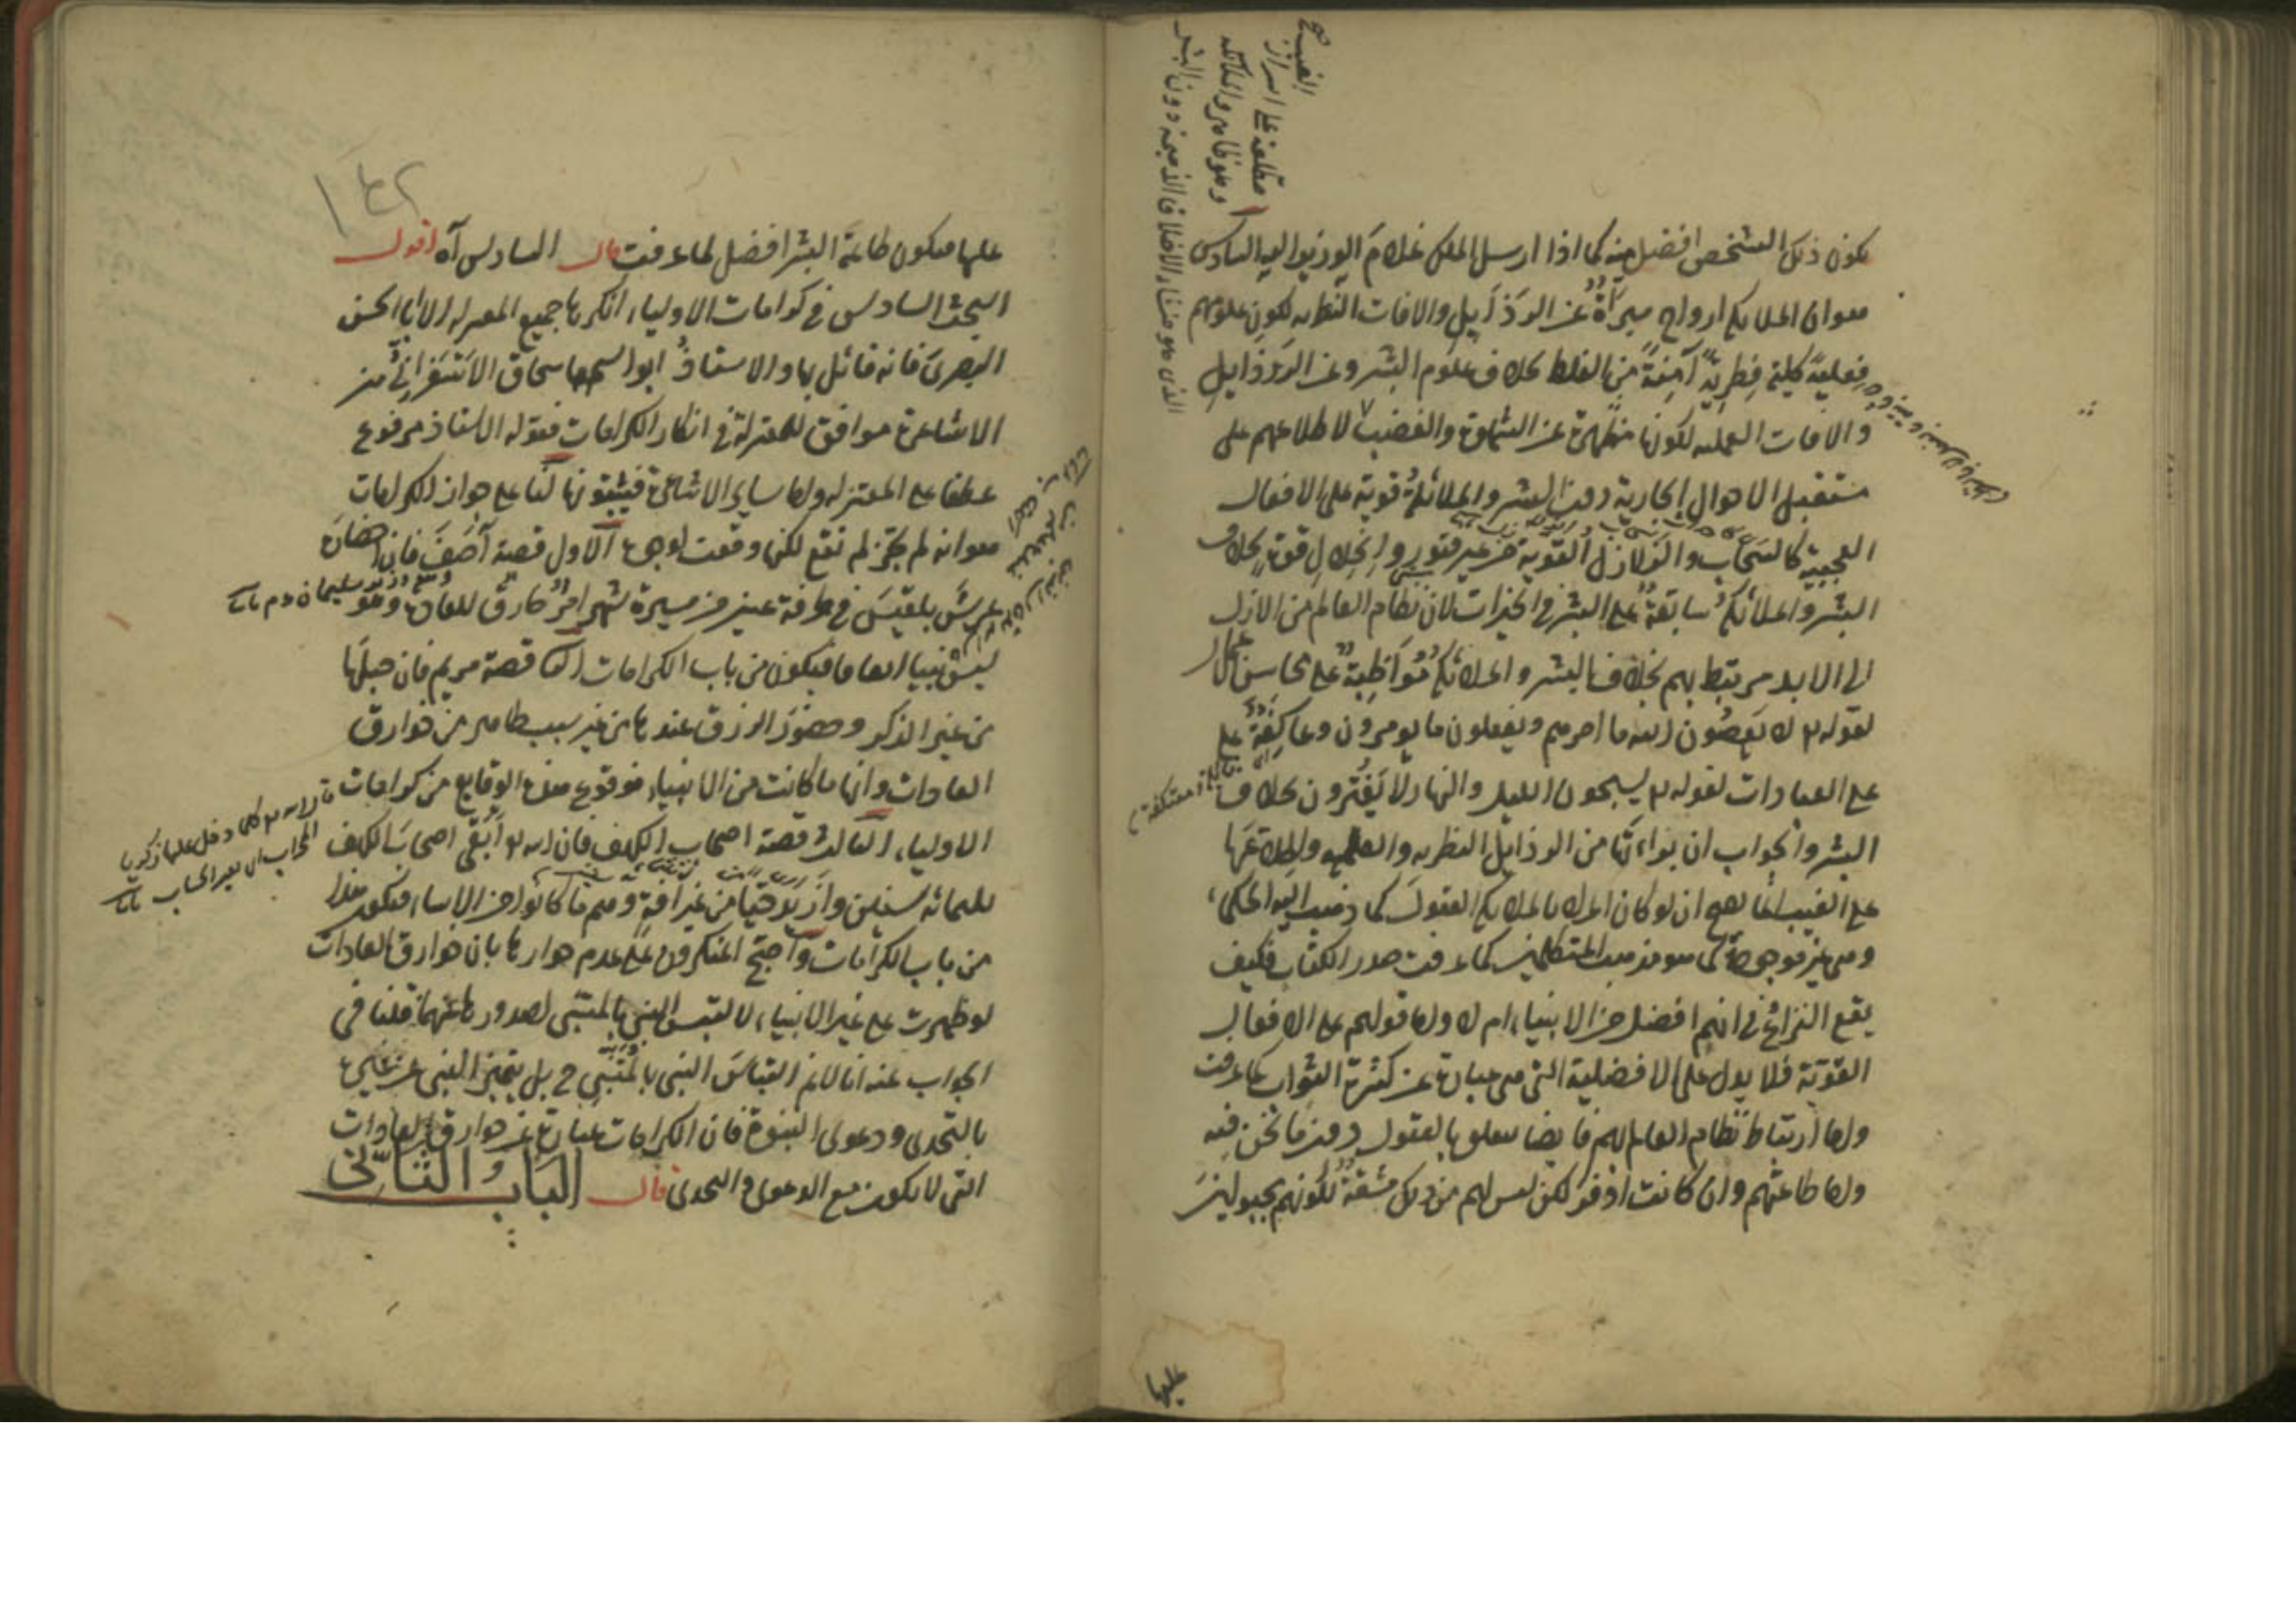 يكون ذلك الشخص افضل منه كما اذا ارسل الملك غلام الوزير اليه السادس
هو ان الملائكة ارواح مبرأة عن الرذايل والافات النظرية لكون علومهم
فعلية كلية فطرية آمنة من الغلط بخلاف علوم البشر وعن الرذايل
والافات العملية لكونها مطهرة عن الشهوة والغضب لاطلاعهم على
مستقبل الاحوال الجارية دون البشر والملائكة قوية على الافعال
العجيبة كالسحاب والزلازل القوية من غير فتور وانحلال قوة بخلاف
البشر والملائكة سابقة على البشر في الخيرات لان نظام العالم من الازل
الى الابد مرتبط بهم بخلاف البشر والملائكة مواظبة على محاسن الاعمال
لقوله تع لا يعصون الله ما امرهم ويفعلون ما يومرون وعاكفة على
على العبادات لقوله تع يسبحون الليل والنهار لا يفترون بخلاف
البشر والجواب ان براءتها من الرذايل النظرية والعملية واطلاعها
على الغيب انما يصح ان لو كان المراد بالملائكة العقول كما ذهب اليه الحكماء
وهي غير موجودة كما هو مذهب المتكلمين كما عرفت صدر الكتاب فكيف
يقع النزاع في انهم افضل من الانبياء ام لا واما قولهم على الافعال
القوية فلا يدل على الافضلية التي هي عبارة عن كثرة الثواب كما عرفت
واما ارتباط نظام العالم بهم فايضا يتعلق بالعقول دون ما نحن فيه
واما طاعتهم وان كانت اوفر لكن ليس لهم من ذلك مشقة لكونهم مجبولين
الغيب
مطلعة على اسرار
وهو ظاهر والملائكة
عليها
١٤٢
عليها فيكون طاعة البشر افضل لما عرفت قال السادس آه اقول
البحث السادس في كرامات الاولياء انكرها جميع المعتزلة الا ابا الحسن
البصري فانه قائل بها والاستاذ ابو اسحاق الاسفرائني من
الاشاعرة موافق للمعتزلة في انكار الكرامات فقوله الاستاذ مرفوع
عطفا على المعتزلة واما ساير الاشاعرة فيثبتونها لنا على جواز الكرامات
هو انه لو لم يجز لم تقع لكنها وقعت لوجوه الاول قصة آصف فان احضاره
عرش بلقيس في طرفة عين من مسيرة شهر امر خارق للعادة وهو
ليس نبيا اتفاقا فيكون من باب الكرامات الثانى قصة مريم فان حبلها
من غير الذكر وحضور الرزق عندها من غير سبب ظاهر من خوارق
العادات وانها ما كانت من الانبياء فوقوع هذه الوقايع من كرامات
الاولياء الثالث قصة اصحاب الكهف فان الله تع ابقى اصحاب الكهف
ثلثمائة سنين وازيد حيا من غير افة وهم ما كانوا من الانبياء فيكون هذا
من باب الكرامات واحتج المنكرون على عدم جوازها بان خوارق العادات
لو ظهرت على غير الانبياء لالتبس النبي بالمتنبي لصدورها عنهما قلنا في
الجواب عنه انا لا نم التباس النبي بالمتنبي ح بل يتميز النبي عن غيره
بالتحدى ودعوى النبوة فان الكرامات عبارة عن خوارق العادات
التي لا يكون مع الدعوى والتحدى قال الباب الثاني
قال الله تع كلما دخل عليها زكريا
المحراب